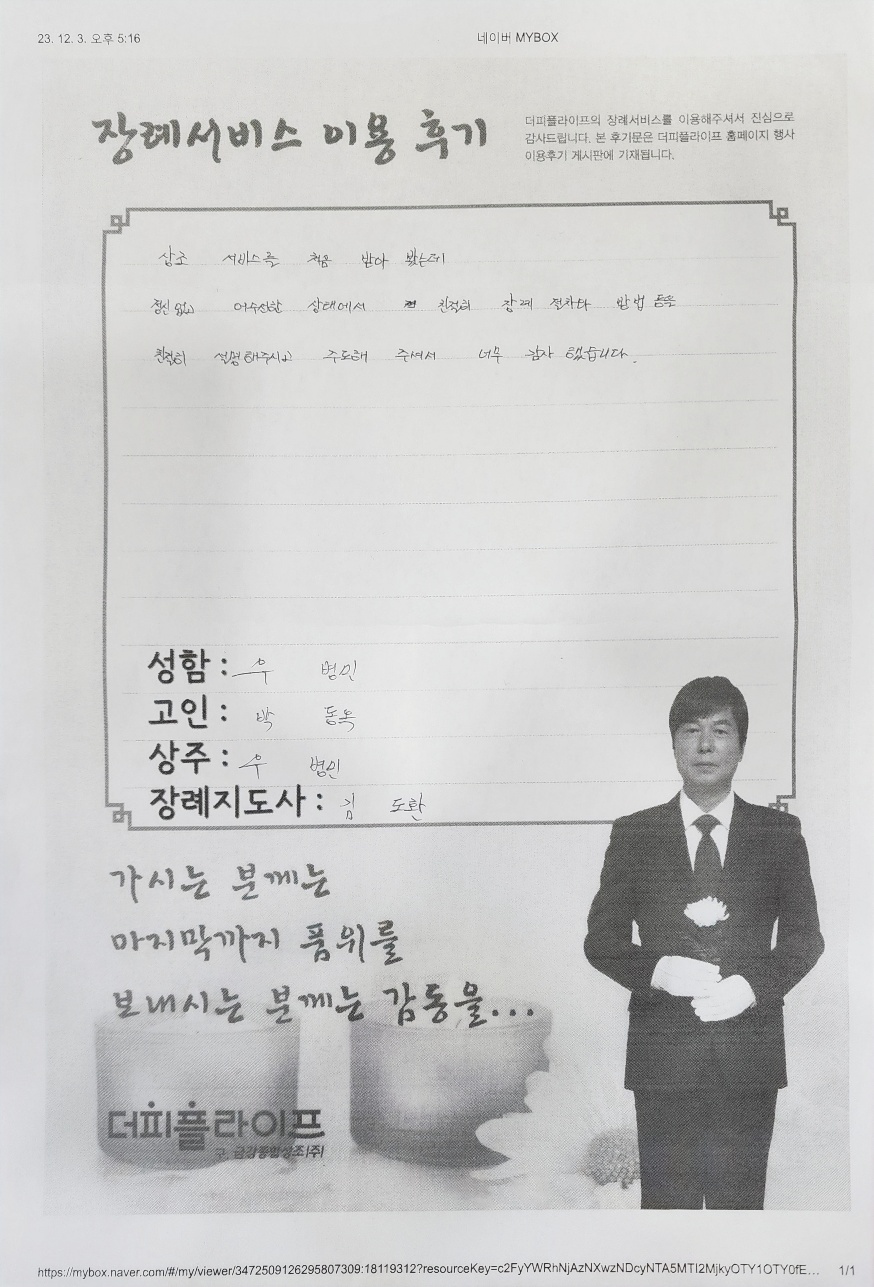 23. 12. 3. 오후 5:16
네이버 MYBOX
장례서비스 이용 후기
더피플라이프의 장례서비스를 이용해주셔서 진심으로
감사드립니다. 본 후기문은 더피플라이프 홈페이지 행사
이용후기 게시판에 기재됩니다.
상조 서비스를 처음 받아 봤는데
정신 없고 어수선한 상태에서 친절히 장례 절차와 방법 등을
친절히 설명해주시고 주도해 주셔서 너무 감사 했습니다.
성함 : 우 범인
고인 : 박 동옥
상주 : 우 범인
장례지도사 : 김 도환
가시는 분께는
마지막까지 품위를
보내시는 분께는 감동을...
더피플라이프
구. 금강종합상조(주)
https://mybox.naver.com/#/my/viewer/3472509126295807309:18119312?resourceKey=c2FyYWRhNjAzNXwzNDcyNTA5MTI2MjkyOTY1OTY0fE...
1/1